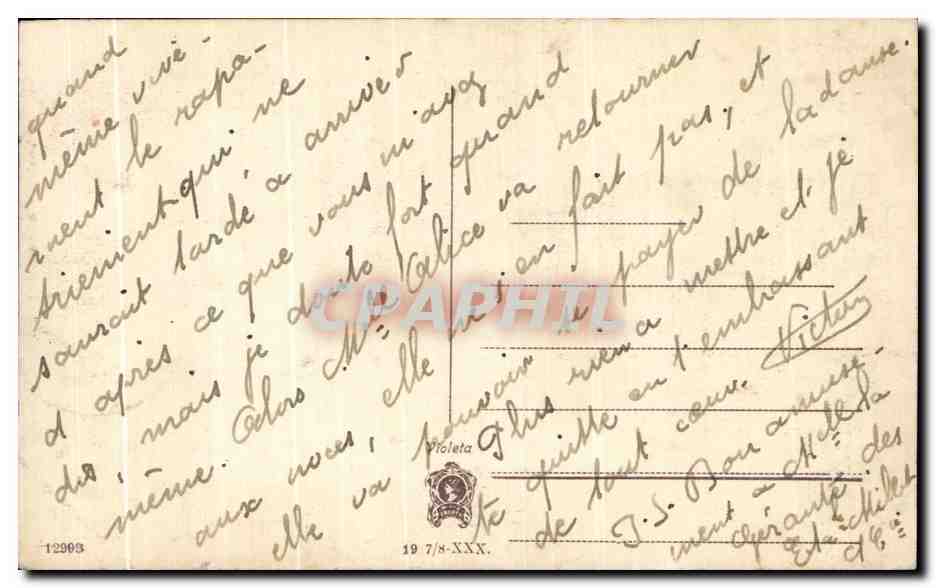 quand
même vive-
ment le rapa-
triement qui ne
saurait tardé a arriver
d après ce que vous m'avez
dis, mais je doute fort quand
même. Alors Mme Alice va retourner
aux noces, elle s'en fait pas, et
elle va pouvoir se payer de la danse.
Plus rien a mettre et je
te quitte en t'embrassant
de tout cœur. Victor
P.S. Bon amuse-
ment a Mlle la
Gérante des
Ets Milch
et Cie
CPAPHIL
Violeta
12993
19 7/8-XXX.